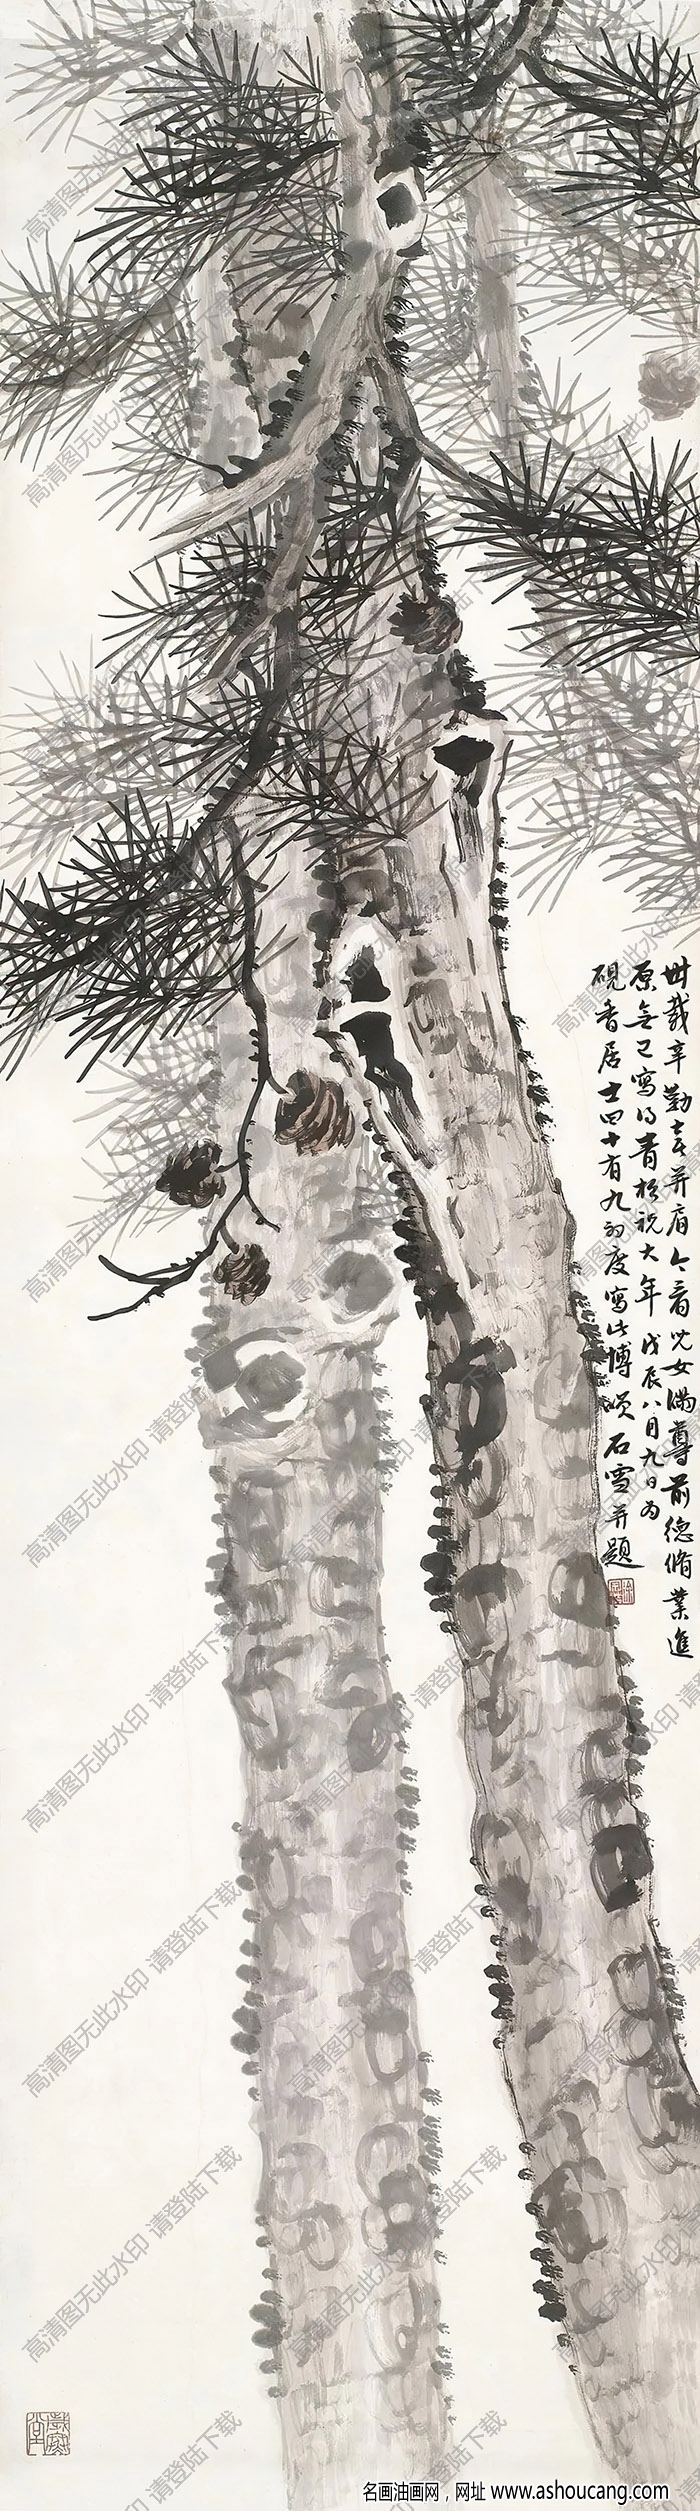 卅載辛勤喜并肩今看兒女滿尊前德脩業進
原無已寫得青松祝大年戊辰八月九日為
硯香居士四十有九初度寫此博笑石雪并題
高清图无此水印 请登陆下载
名画油画网，网址 www.ashoucang.com